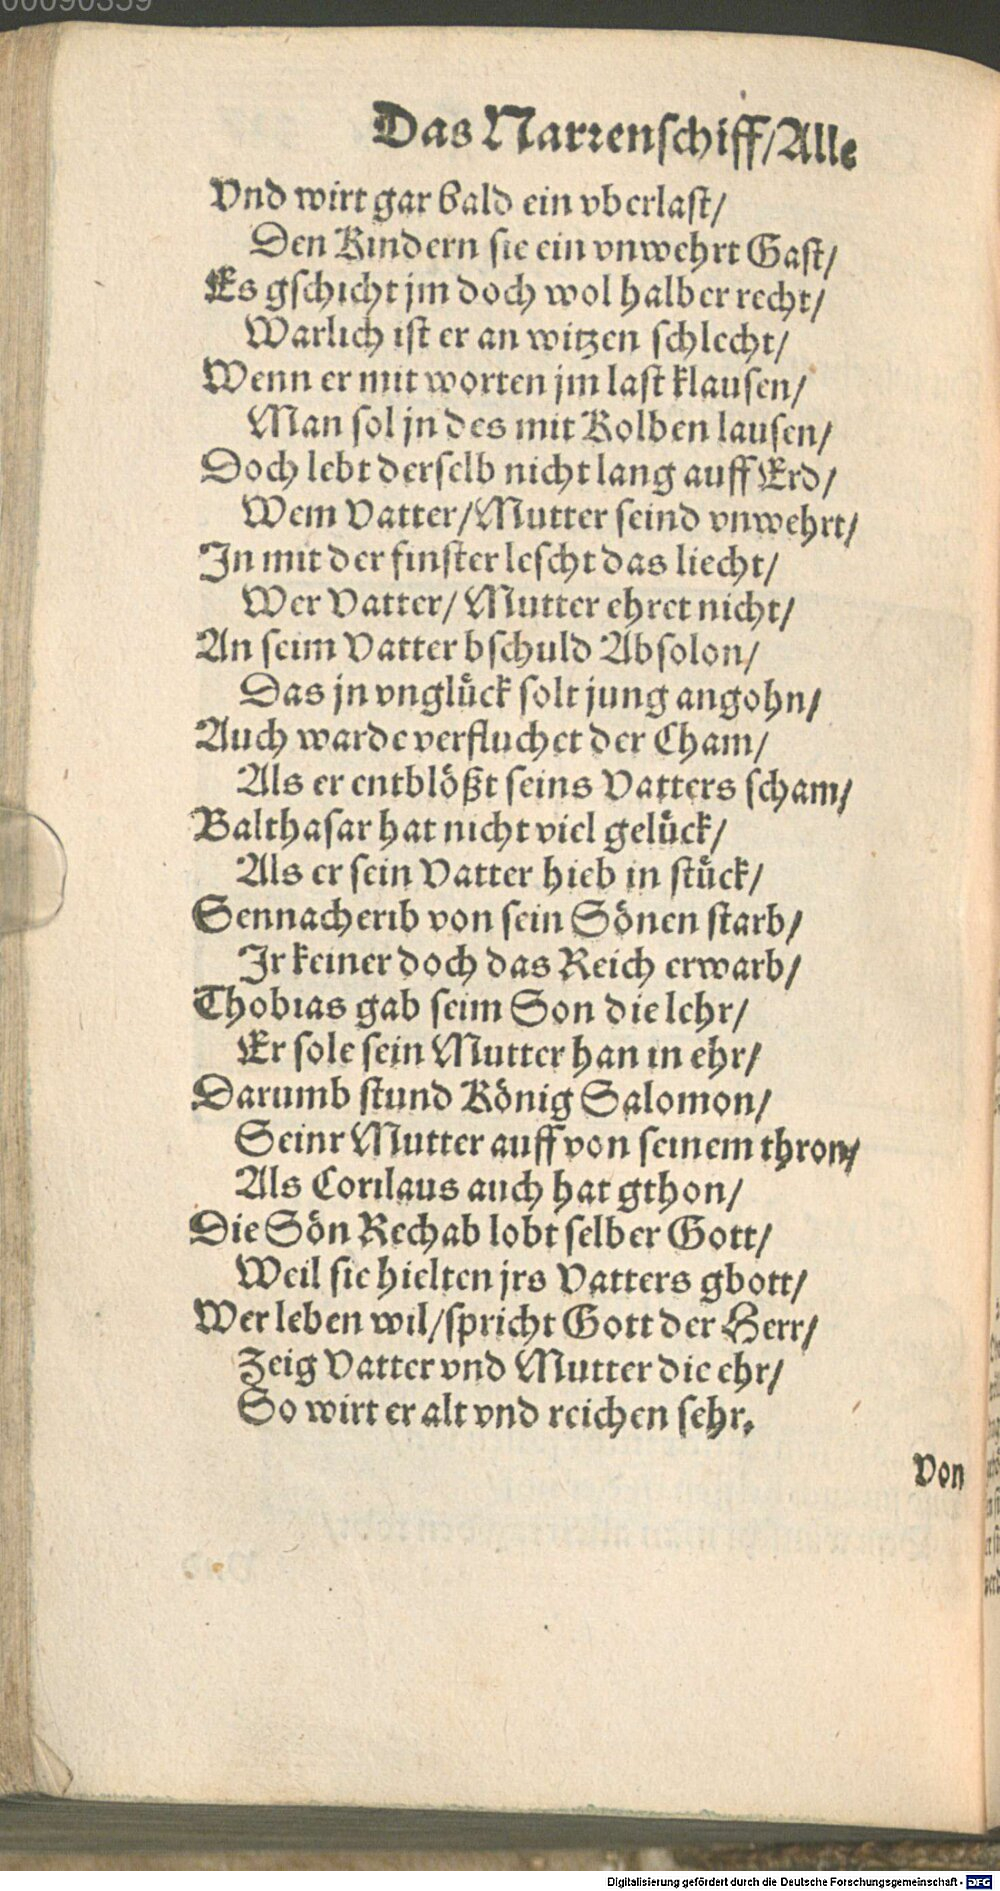 00090359
Das Narrenschiff/Alle
Vnd wirt gar bald ein vberlast/
Den Kindern sie ein vnwehrt Gast/
Es gschicht jm doch wol halber recht/
Warlich ist er an witzen schlecht/
Wenn er mit worten jm last klausen/
Man sol jn des mit Kolben lausen/
Doch lebt derselb nicht lang auff Erd/
Wem Vatter/Mutter seind vnwehrt/
In mit der finster lescht das liecht/
Wer Vatter/ Mutter ehret nicht/
An seim Vatter bschuld Absolon/
Das jn vnglück solt jung angohn/
Auch warde verfluchet der Cham/
Als er entblößt seins Vatters scham/
Balthasar hat nicht viel gelück/
Als er sein Vatter hieb in stück/
Sennacherib von sein Sönen starb/
Ir keiner doch das Reich erwarb/
Thobias gab seim Son die lehr/
Er sole sein Mutter han in ehr/
Darumb stund König Salomon/
Seinr Mutter auff von seinem thron/
Als Corilaus auch hat gthon/
Die Sön Rechab lobt selber Gott/
Weil sie hielten jrs Vatters gbott/
Wer leben wil/spricht Gott der Herr/
Zeig Vatter vnd Mutter die ehr/
So wirt er alt vnd reichen sehr.
Von
Digitalisierung gefördert durch die Deutsche Forschungsgemeinschaft - DFG